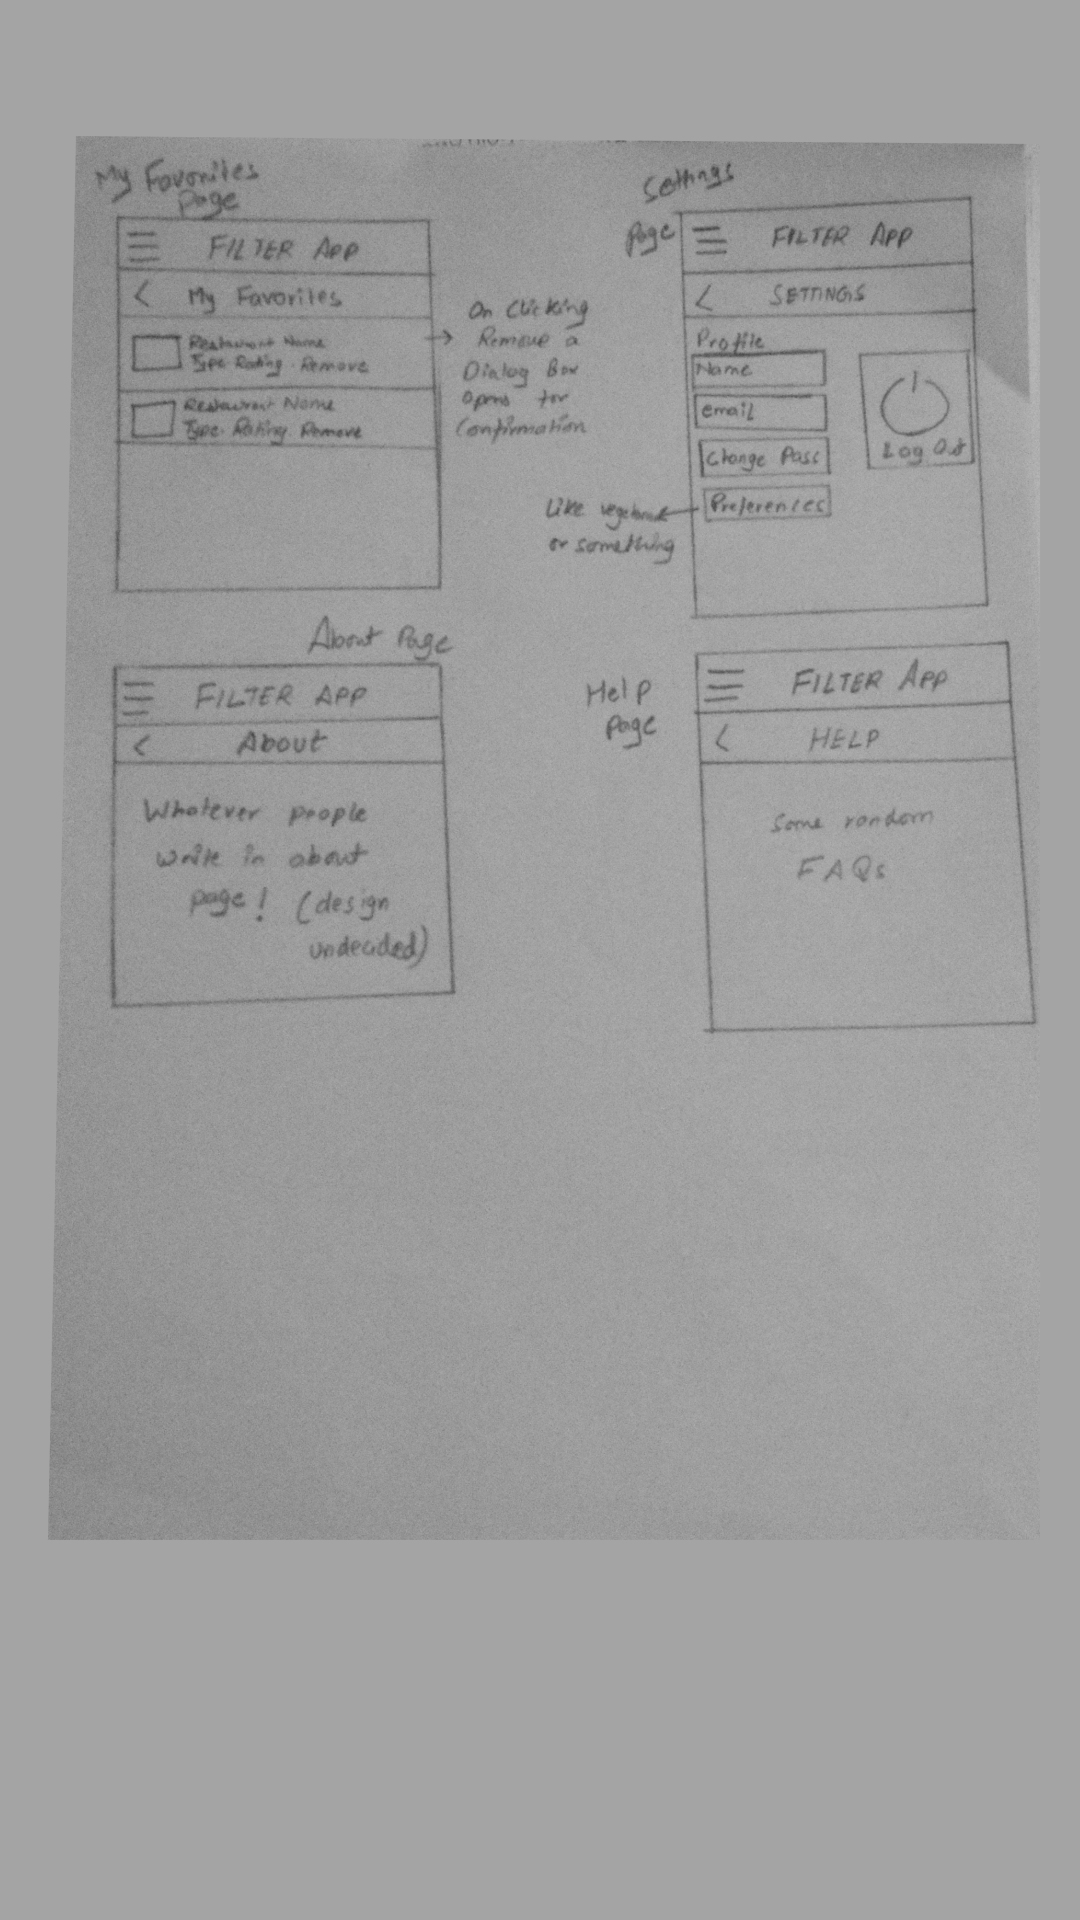 My Favorites
Page
FILTER APP
< My Favorites
Restaurant Name
Type. Rating. Remove
Restaurant Name
Type. Rating. Remove
On Clicking
Remove a
Dialog Box
opens for
Confirmation
Settings
Page
FILTER APP
< SETTINGS
Profile
Name
email
Change Pass
Preferences
Log Out
Like
or something
About Page
FILTER APP
< About
Whatever people
write in about
page! (design
undecided)
Help
Page
FILTER APP
< HELP
Some random
FAQs